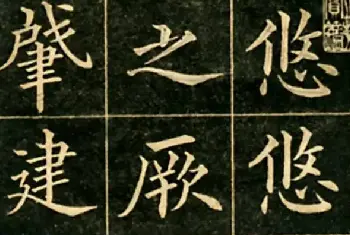 悠悠
之厥
肈建